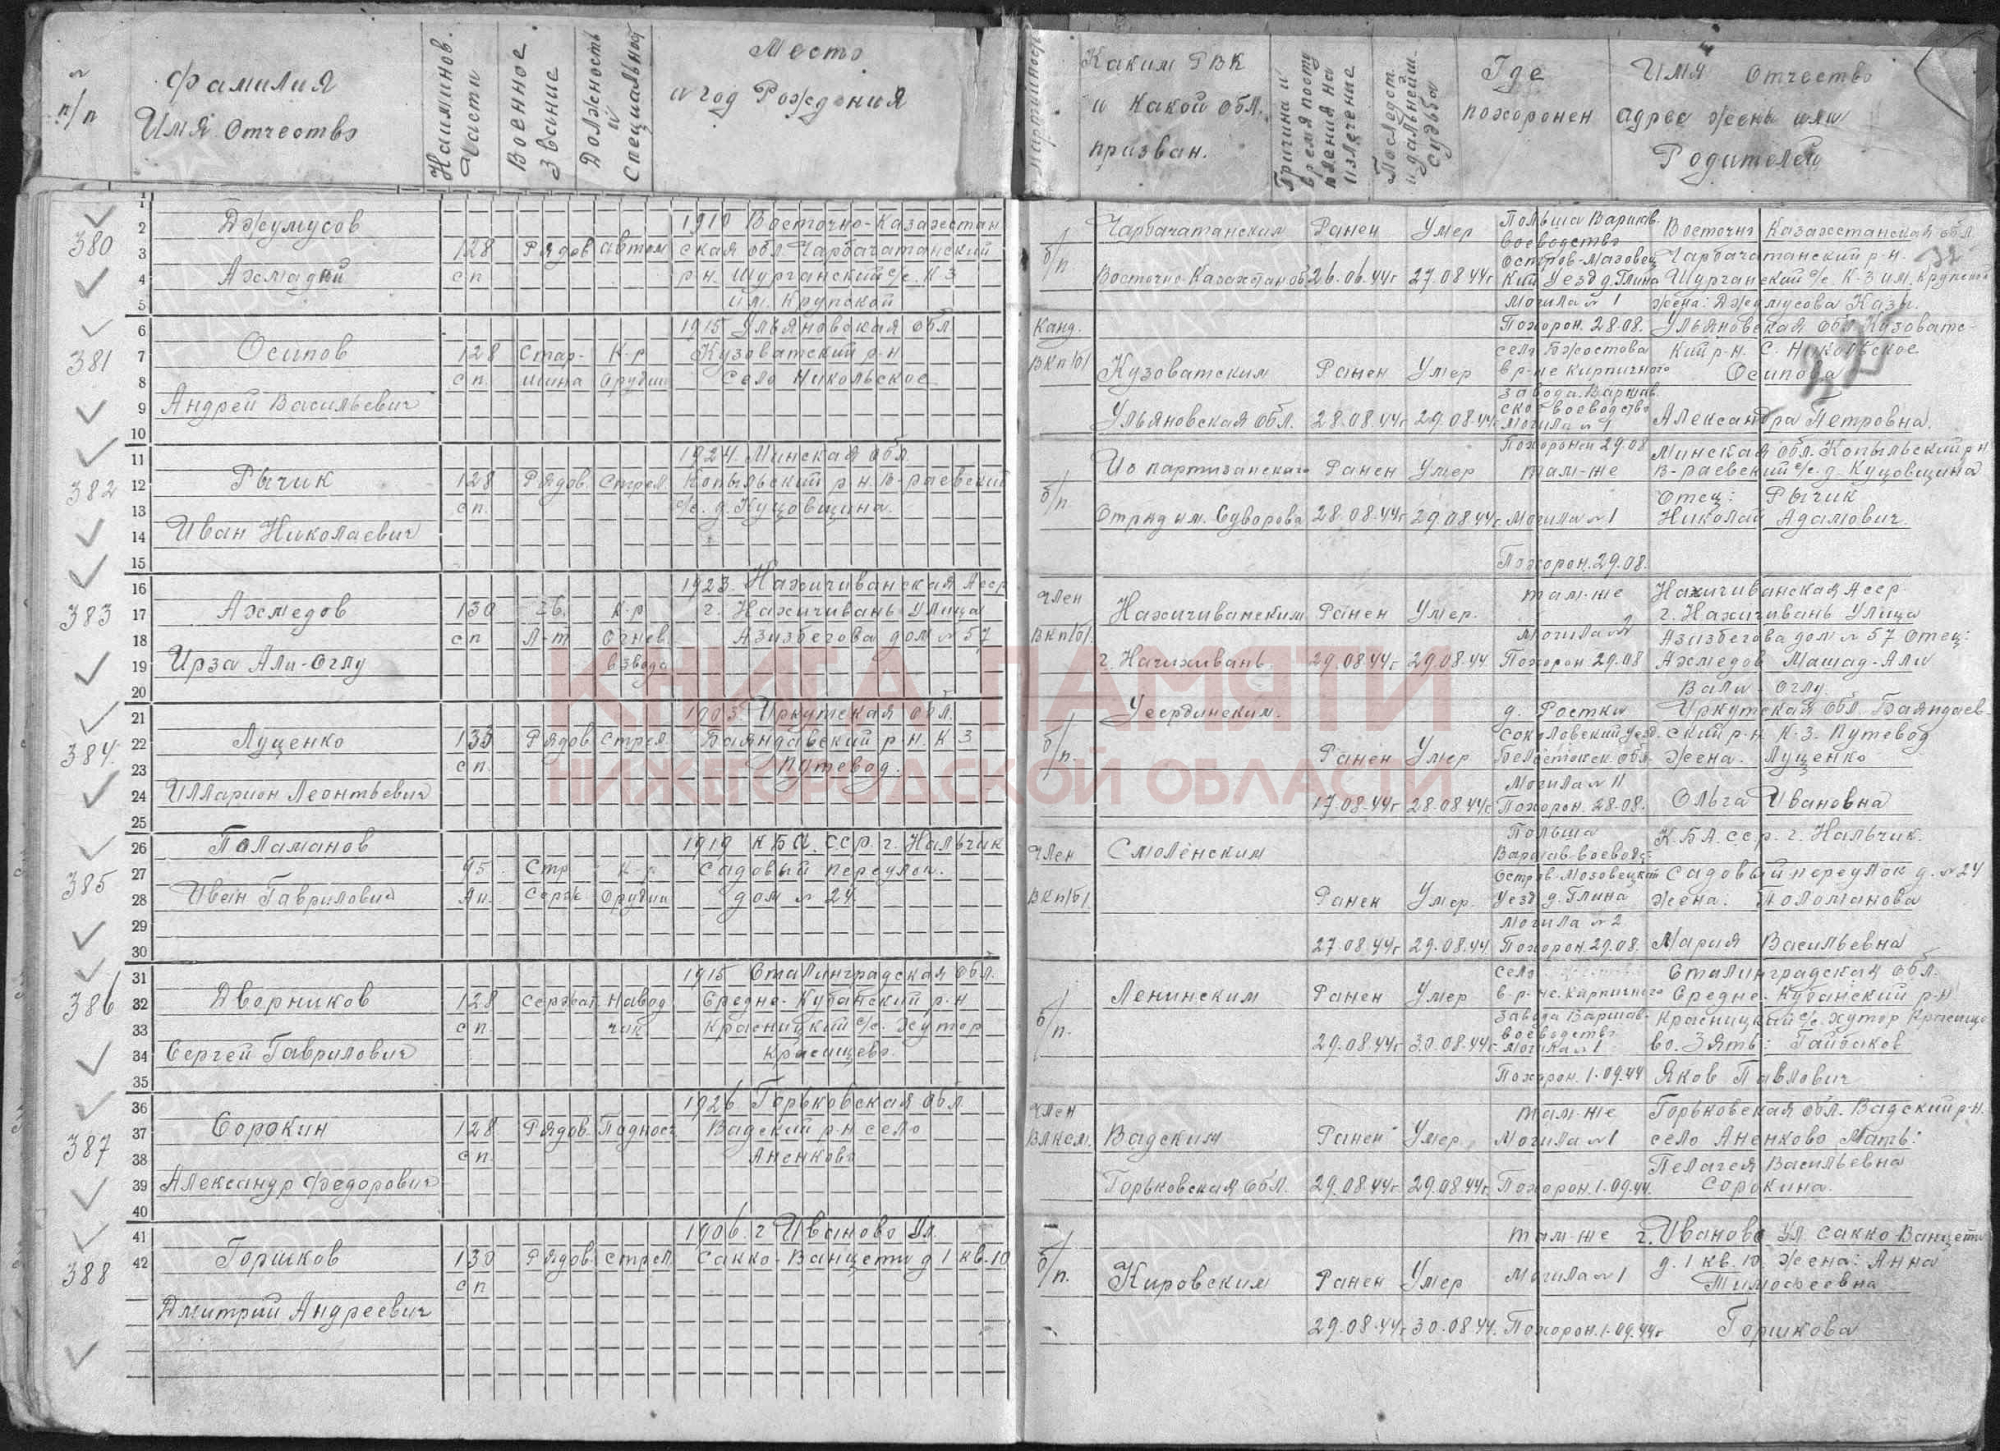 № п/п
Фамилия
Имя Отчество
Наиминов. Части
Военное Звание
Должность и Специальност
Место
и год Рождения
Партийность
Каким РВК
и Какой обл.
призван.
Причина и время поступления на излечение
Последст. и дальнейш. судьба
Где
похоронен
Имя Отчество
адрес жены или
Родителей
380
Джумусов
Ахмадий
128 сп
Рядов
автом
1910 Восточно-Казахстан
ская обл. Чарбачатанский
р-н. Шурганский с/с. К З
им. Крупской
б/п
Чарбачатанским
Восточно-Казахстан об
Ранен
26.06.44г
Умер
27.08.44г
Польша Варшав.
воеводство
Остров-Мазовец
кий Уезд д. Глина
Могила № 1
Похорон. 28.08.
Восточно Казахстанская обл
Чарбачатанский р-н.
Шурганский с/с. К-З им. Крупской
жена: Джумусова Казы.
381
Осипов
Андрей Васильевич
128 сп.
Стар-
шина
К-р
Орудии
1915 Ульяновская обл
Кузоватский р-н
Село Никольское
Канд.
ВКП/б/
Кузоватским
Ульяновская обл.
Ранен
28.08.44г
Умер
29.08.44г
село
в р-не кирпичного
завода. Варшав.
ского воеводство
Могила № 1
Похоронен 29.08
Ульяновская обл. Кузоватс-
кий р-н. С. Никольское
Осипова
Александра Петровна.
382
Рычик
Иван Николаевич
128 сп.
Рядов
Стрел
1924. Минская обл.
Копыльский р-н. В-раевский
с/с. д. Куцовщина.
б/п
Из партизанского
Отряд им. Суворова
Ранен
28.08.44г
Умер
29.08.44г
там-же
Могила № 1
Похорон. 29.08.
Минская обл. Копыльский р-н
В-раевский с/с. д. Куцовщина
Отец: Рычик
Николай Адамович.
383
Ахмедов
Ирза Али-Оглу
130 сп
Гв.
Л-т
К-р
Огнев.
взвода
1923. Нахичиванская Асср
г. Нахичивань Улица
Азизбегова дом № 57
Член
ВКП/б/.
Нахичиванским
г. Начихивань
Ранен
29.08.44г
Умер.
29.08.44
там-же
Могила № 2
Похорон. 29.08
Нахичиванская Асср
г. Нахичивань Улица
Азизбегова дом № 57 Отец:
Ахмедов Машад-Али
Вали-Оглу.
384.
Луценко
Илларион Леонтьевич
133 сп.
Рядов
Стрел
1903. Иркутская обл.
Баяндавский р-н. К З
Путевод.
б/п.
Усердинским.
Ранен
17.08.44г
Умер
28.08.44г.
д. Ростки
Соколовский уезд.
Белостокск. обл.
Могила № 11
Похорон. 28.08.
Иркутская обл. Баяндаев-
ский р-н. К-З. Путевод
жена. Луценко
Ольга Ивановна
385
Поламанов
Иван Гаврилович
95 Ап.
Стр
Серж
К-р
Орудии
1919 КБА.ССР г. Нальчик
Садовый переулок.
дом № 24.
Член
ВКП/б/.
Смоленским
Ранен
27.08.44г
Умер.
29.08.44
Польша
Варшав. воевод-
Остров-Мозовецкий
уезд д. Глина
Могила № 2
Похорон. 29.08.
К.БА.ССР. г. Нальчик.
Садовый переулок д. № 24
жена. Поломанова
Мария Васильевна
386
Дворников
Сергей Гаврилович
128 сп.
Сержат
Навод
чик
1915 Сталинградская обл.
Средне-Кубанский р-н
Красницкий с/с. Хутор
Красищево.
б/п.
Ленинским
Ранен
29.08.44г
Умер
30.08.44г.
село
в р-не. Кирпичного
завода Варшав-
воеводство
Могила № 1
Похорон. 1-09.44
Сталинградская обл.
Средне-Кубанский р-н
Красницкий с/с. хутор Красище
во. Зять: Гайбаков
Яков Павлович
387
Сорокин
Александр Федорович
128 сп.
Рядов
Поднос
1926 Горьковская обл
Вадский р-н село
Аненково
Член
ВЛКСМ.
Вадским
Горьковская обл.
Ранен
29.08.44г
Умер
29.08.44г.
там-же
Могила № 1
Похорон. 1-09.44.
Горьковская обл. Вадский р-н.
село Аненково Мать:
Пелагея Васильевна
Сорокина.
388
Горшков
Дмитрий Андреевич
130 сп
Рядов
стрел
1906. г Иваново Ул.
Сакко-Ванцети д 1 кв. 10
б/п.
Кировским
Ранен
29.08.44г
Умер
30.08.44.
там-же
Могила № 1
Похорон. 1-09.44г
г. Иваново Ул. Сакко Ванцети
д. 1 кв. 10. Жена: Анна
Тимофеевна
Горшкова
КНИГА ПАМЯТИ
НИЖЕГОРОДСКОЙ ОБЛАСТИ